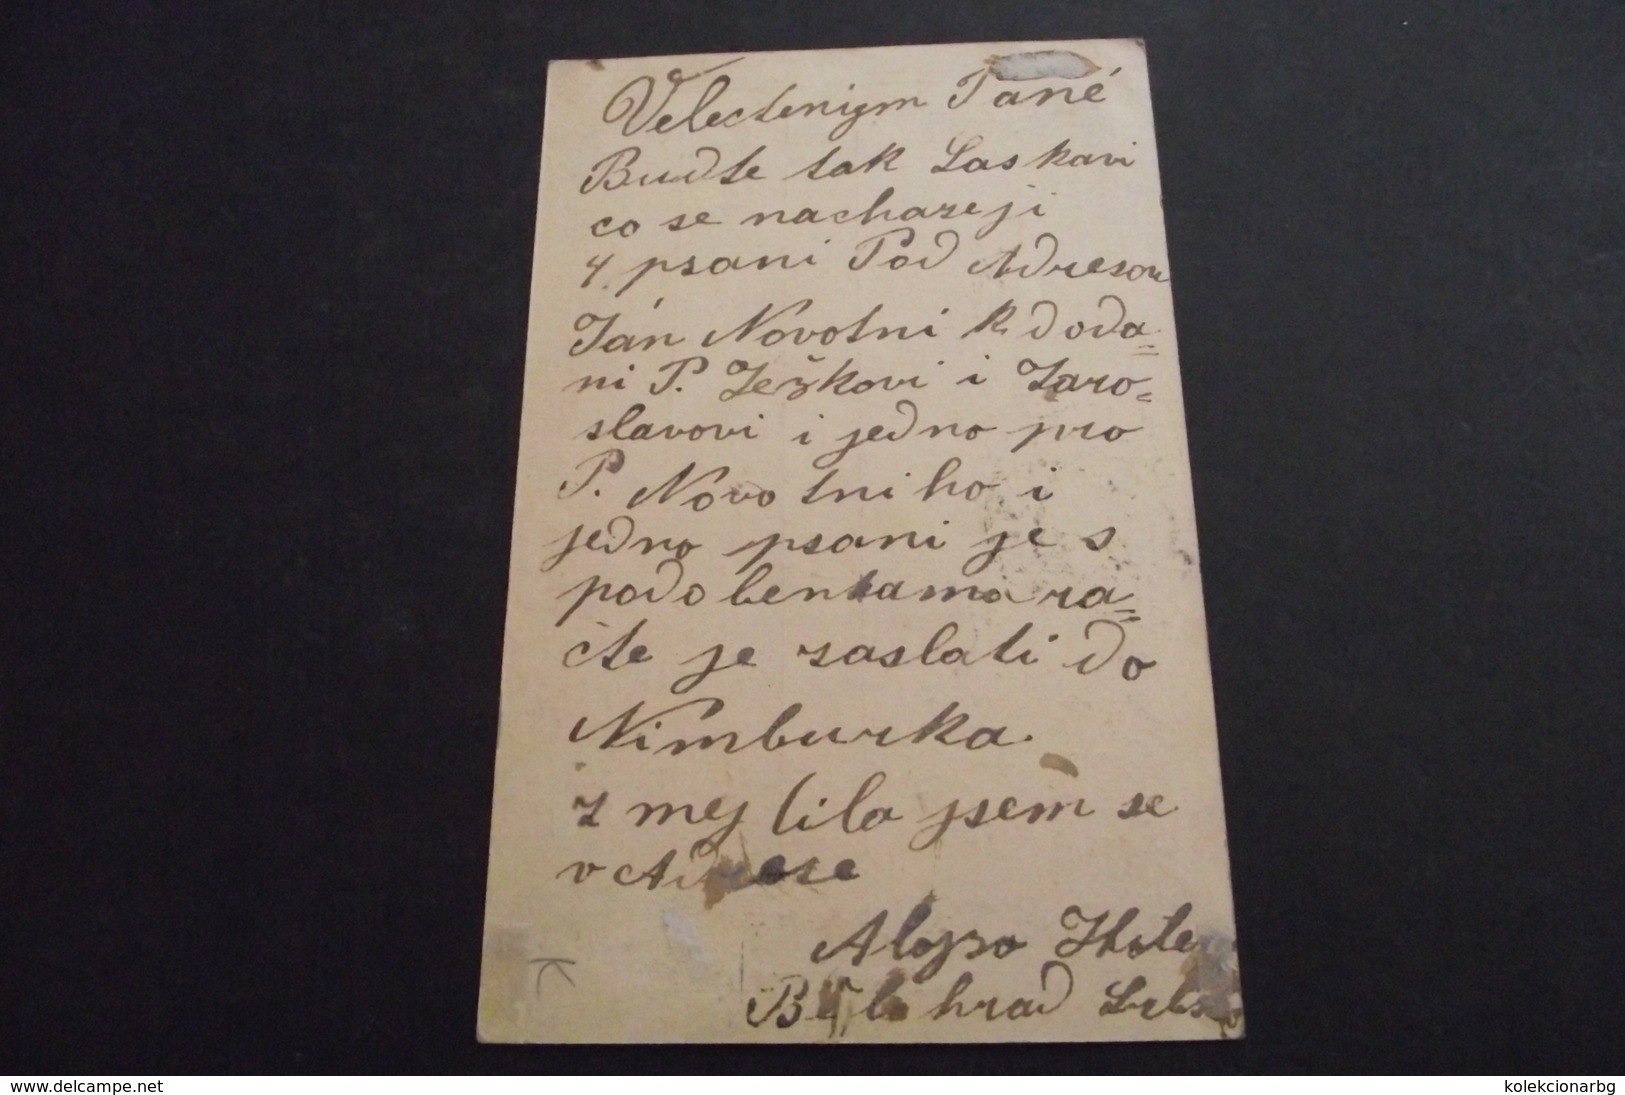 Velectenigm Pané
Budte tak Laskavi
co se nachazeji
4. psani Pod Adresou
Ján Novotni k doda=
ni P. Ježkovi i Jaro=
slavovi i jedno pro
P. Novotniho i
jedno psani je s
podobenkama ra=
čte je zaslati do
Nimburka.
z mejlila jsem se
v Adrese
Alojso
Bělehrad
www.delcampe.net
kolekcionarbg